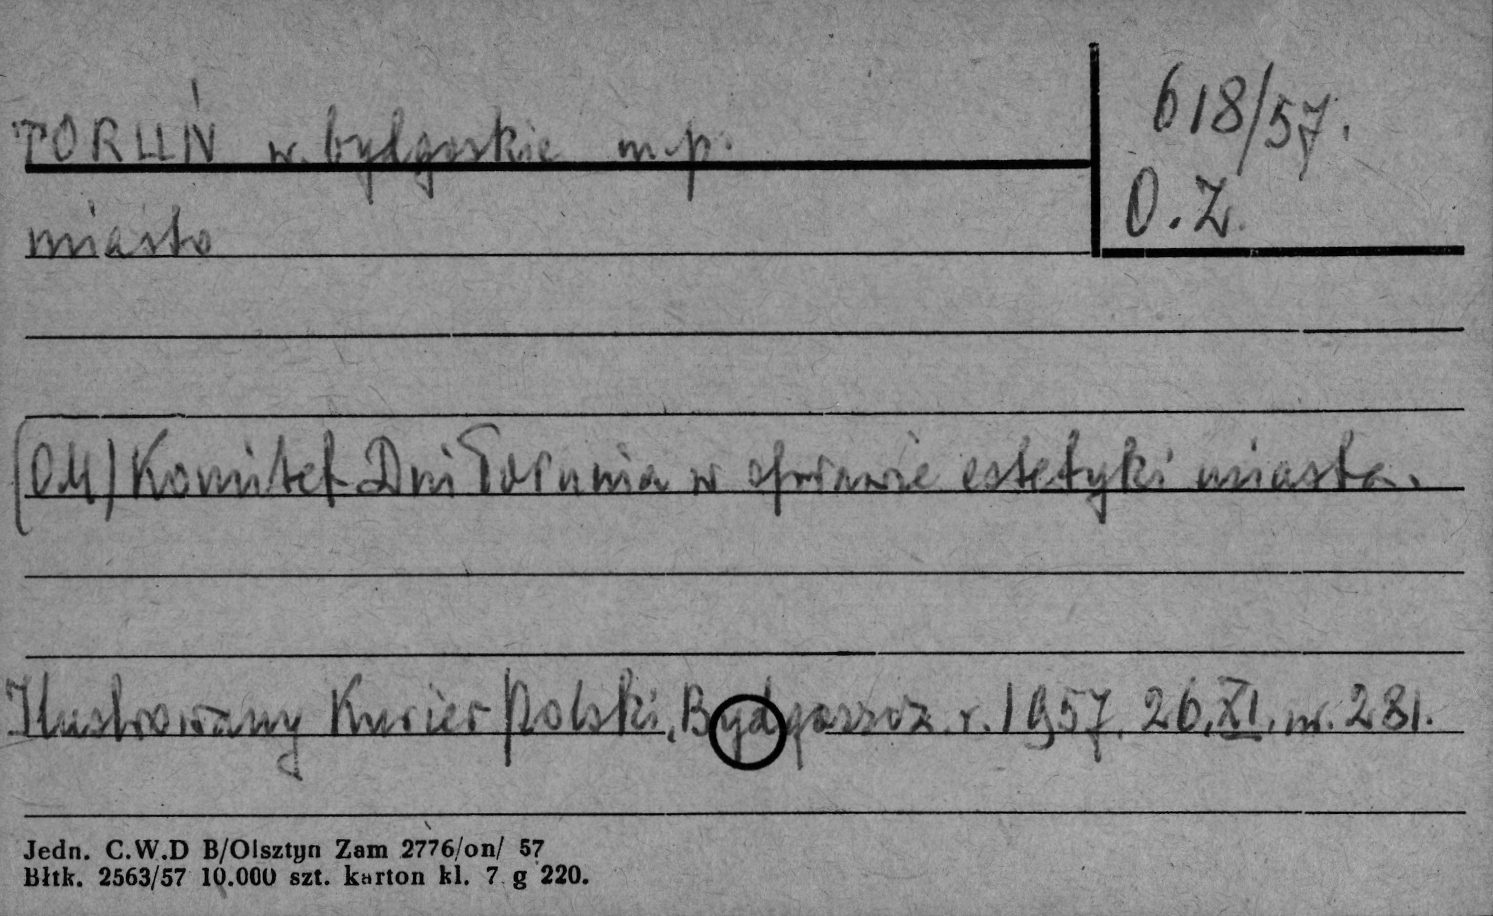 TORUŃ w. bydgoskie m.p.
618/57.
O.Z.
miasto
(OM) Komitet Dni Torunia w sprawie estetyki miasta.
Ilustrowany Kurier Polski, Bydgoszcz. r. 1957. 26.XI. nr. 281.
Jedn. C.W.D B/Olsztyn Zam 2776/on/ 57
Błtk. 2563/57 10.000 szt. karton kl. 7 g 220.